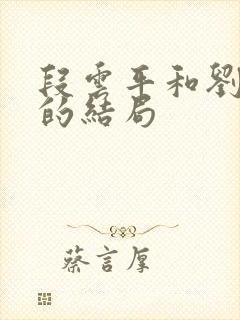 段雲平和劉
的結局
蔡言厚